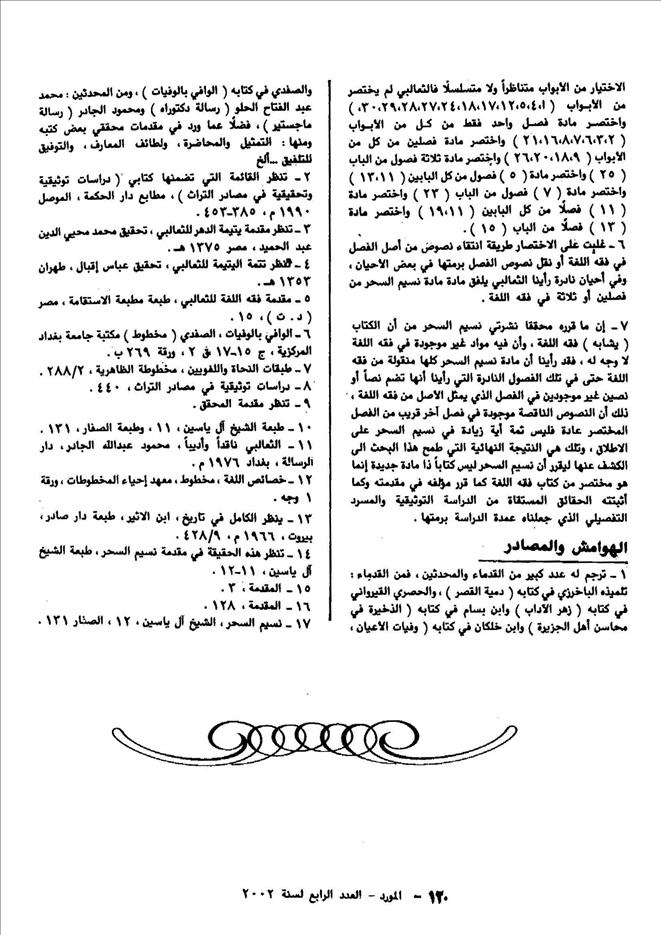 الاختيار من الأبواب متناظراً ولا متسلسلًا فالثعالبي لم يختصر
من الأبواب ( ١،٤،٥،١٢،١٧،١٨،٢٤،٢٧،٢٨،٢٩،٣٠، )
واختصر مادة فصل واحد فقط من كل من الأبواب
( ٢،٣،٦،٧،٨،١٦،٢١ ) واختصر مادة فصلين من كل من
الأبواب ( ٩،١٨،٢٠،٢٦ ) واختصر مادة ثلاثة فصول من الباب
( ٢٥ ) واختصر مادة ( ٥ ) فصول من كل البابين ( ١١،١٣ )
واختصر مادة ( ٧ ) فصول من الباب ( ٢٣ ) واختصر مادة
( ١١ ) فصلًا من كل البابين ( ١١،١٩ ) واختصر مادة
( ١٣ ) فصلًا من الباب ( ١٥ ) .
٦ ـ غلبت على الاختصار طريقة انتقاء نصوص من أصل الفصل
في فقه اللغة أو نقل نصوص الفصل برمتها في بعض الأحيان ،
وفي أحيان نادرة رأينا الثعالبي يلفق مادة مادة نسيم السحر من
فصلين أو ثلاثة في فقه اللغة .
٧ ـ إن ما قرره محققا نشرتي نسيم السحر من أن الكتاب
( يشابه ) فقه اللغة ، وأن فيه مواد غير موجودة في فقه اللغة
لا وجه له ، فقد رأينا أن مادة نسيم السحر كلها منقولة من فقه
اللغة حتى في تلك الفصول النادرة التي رأينا أنها تضم نصاً أو
نصين غير موجودين في الفصل الذي يمثل الأصل من فقه اللغة ،
ذلك أن النصوص الناقصة موجودة في فصل آخر قريب من الفصل
المختصر عادة فليس ثمة أية زيادة في نسيم السحر على
الاطلاق ، وتلك هي النتيجة النهائية التي طمح هذا البحث الى
الكشف عنها ليقرر أن نسيم السحر ليس كتاباً ذا مادة جديدة إنما
هو مختصر من كتاب فقه اللغة كما قرر مؤلفه في مقدمته وكما
أثبتته الحقائق المستقاة من الدراسة التوثيقية والمسرد
التفصيلي الذي جعلناه عمدة الدراسة برمتها .
الهوامش والمصادر
١ ـ ترجم له عدد كبير من القدماء والمحدثين ، فمن القدماء :
تلميذه الباخرزي في كتابه ( دمية القصر ) ، والحصري القيرواني
في كتابه ( زهر الآداب ) وابن بسام في كتابه ( الذخيرة في
محاسن أهل الجزيرة ) وابن خلكان في كتابه ( وفيات الأعيان ،
والصفدي في كتابه ( الوافي بالوفيات ) ، ومن المحدثين : محمد
عبد الفتاح الحلو ( رسالة دكتوراه ) ومحمود الجادر ( رسالة
ماجستير ) ، فضلًا عما ورد في مقدمات محققي بعض كتبه
ومنها : التمثيل والمحاضرة ، ولطائف المعارف ، والتوفيق
للتلفيق ...ألخ
٢ ـ تنظر القائمة التي تضمنها كتابي ( دراسات توثيقية
وتحقيقية في مصادر التراث ) ، مطابع دار الحكمة ، الموصل
١٩٩٠ م ، ٣٨٥ـ٤٥٣ .
٣ ـ تنظر مقدمة يتيمة الدهر للثعالبي ، تحقيق محمد محيي الدين
عبد الحميد ، مصر ١٣٧٥ هـ .
٤ ـ تنظر تتمة اليتيمة للثعالبي ، تحقيق عباس إقبال ، طهران
١٣٥٣ هـ .
٥ ـ مقدمة فقه اللغة للثعالبي ، طبعة مطبعة الاستقامة ، مصر
( د . ت ) ، ١٥ .
٦ ـ الوافي بالوفيات ، الصفدي ( مخطوط ) مكتبة جامعة بغداد
المركزية ، ج ١٥ـ١٧ ق ٢ ، ورقة ٢٦٩ ب .
٧ ـ طبقات النحاة واللغويين ، مخطوطة الظاهرية ، ٢٨٨/٢ .
٨ ـ دراسات توثيقية في مصادر التراث ، ٤٤٠ .
٩ ـ تنظر مقدمة المحقق .
١٠ ـ طبعة الشيخ آل ياسين ، ١١ ، وطبعة الصفار ، ١٣١ .
١١ ـ الثعالبي ناقداً وأديباً ، محمود عبدالله الجادر ، دار
الرسالة ، بغداد ١٩٧٦ م .
١٢ ـ خصائص اللغة ، مخطوط ، معهد إحياء المخطوطات ، ورقة
١ وجه .
١٣ ـ ينظر الكامل في تاريخ ، ابن الاثير ، طبعة دار صادر ،
بيروت ، ١٩٦٦ م ، ٤٢٨/٩ .
١٤ ـ تنظر هذه الحقيقة في مقدمة نسيم السحر ، طبعة الشيخ
آل ياسين ، ١١ـ١٢ .
١٥ ـ المقدمة ، ٣ .
١٦ ـ المقدمة ، ١٢٨ .
١٧ ـ نسيم السحر ، الشيخ آل ياسين ، ١٢ ، الصفار ١٣١ .
١٢٠ - المورد - العدد الرابع لسنة ٢٠٠٢